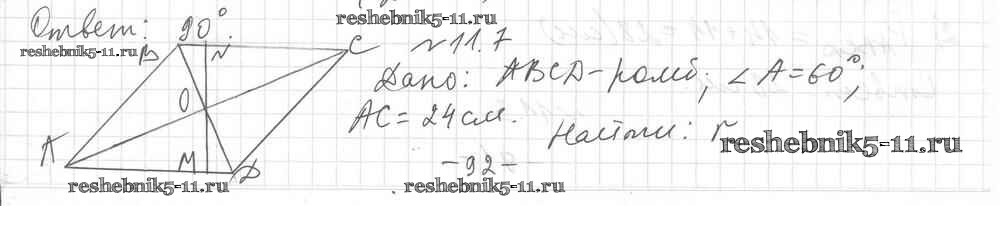 Ответ: 90°.
reshebnik5-11.ru
reshebnik5-11.ru
B N C
№11.7
Дано: ABCD - ромб; ∠A=60°;
O
AC=24см.
Найти: r
reshebnik5-11.ru
A M D
-92-
reshebnik5-11.ru
reshebnik5-11.ru